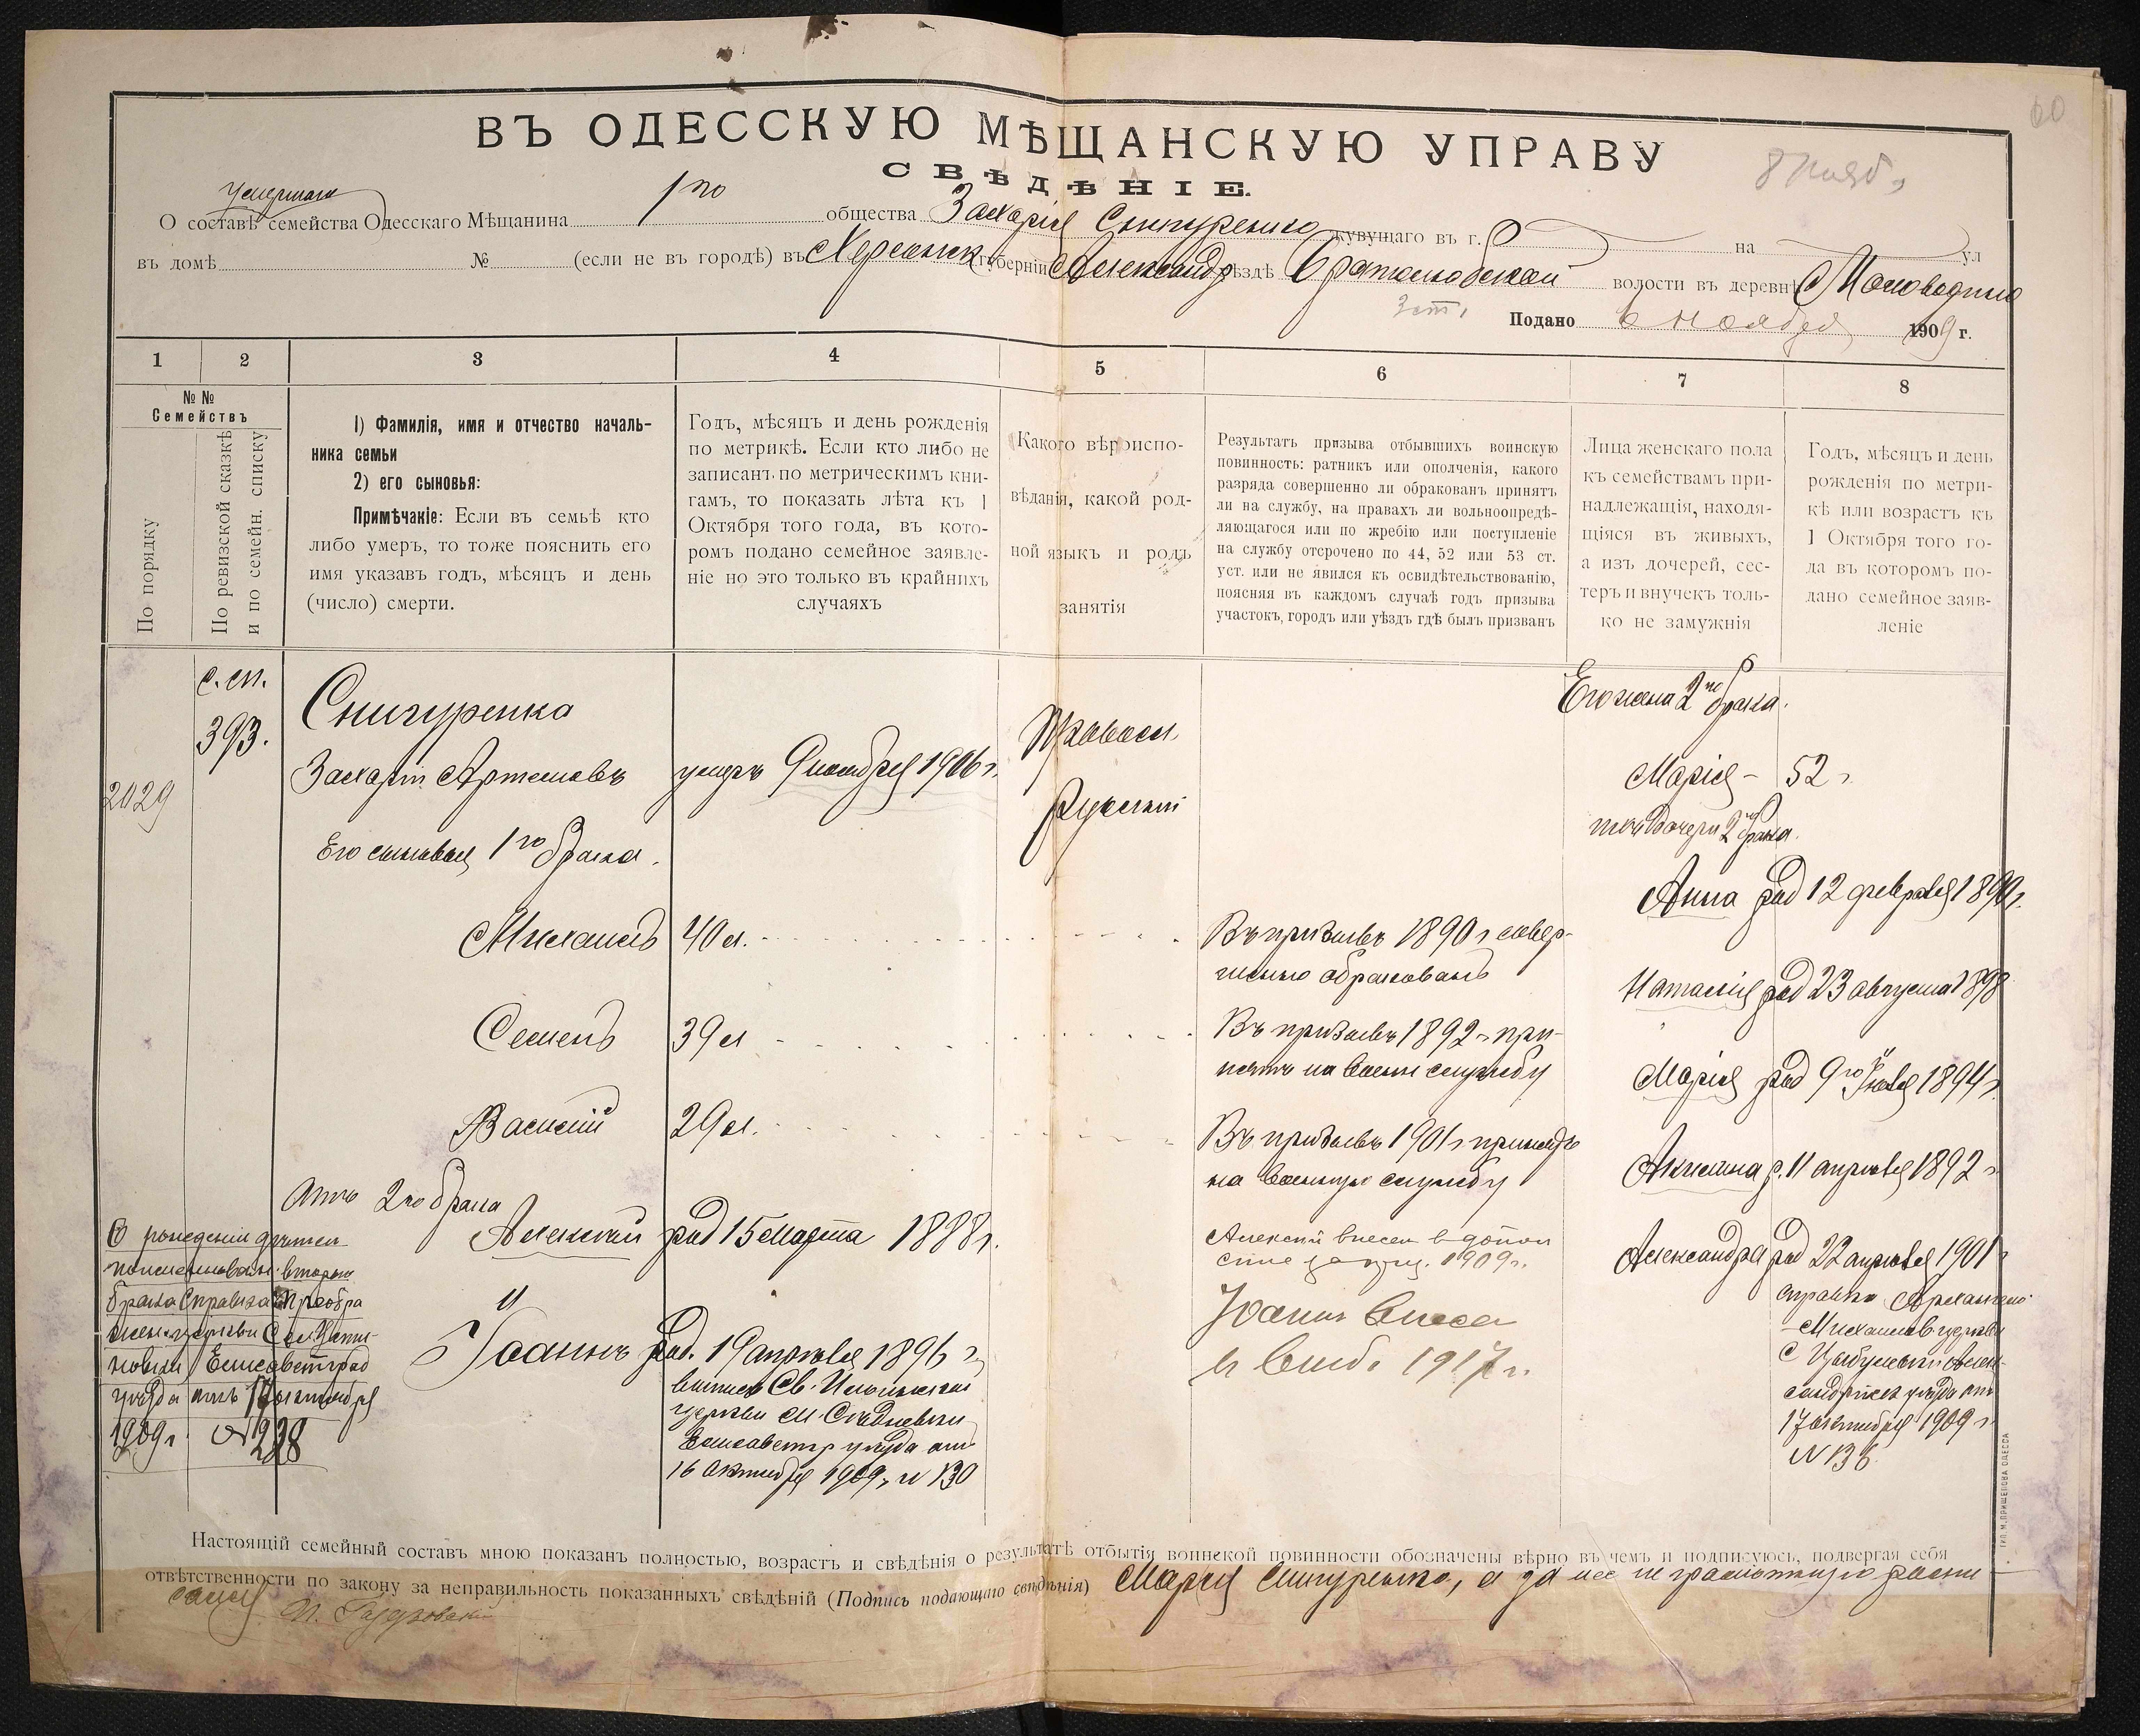 60
ВЪ ОДЕССКУЮ МѢЩАНСКУЮ УПРАВУ
СВѢДѢНІЕ.
8 Нояб.
умершаго
О составѣ семейства Одесскаго Мѣщанина 1го общества Захарія Снигуренко живущаго въ г. на ул
въ домѣ № (если не въ городѣ) въ Херсонск губерніи Александр уѣздѣ Братолюбовской волости въ деревнѣ
3 ст.
Подано 6 ноября 1909 г.
1 2 3 4 5 6 7 8
№ №
Семействъ
По порядку
По ревизской сказкѣ
и по семейн. списку
1) Фамилія, имя и отчество началь-
ника семьи
2) его сыновья:
Примѣчаніе: Если въ семьѣ кто
либо умеръ, то тоже пояснить его
имя указавъ годъ, мѣсяцъ и день
(число) смерти.
Годъ, мѣсяцъ и день рожденія
по метрикѣ. Если кто либо не
записанъ по метрическимъ кни-
гамъ, то показать лѣта къ 1
Октября того года, въ кото-
ромъ подано семейное заявле-
ніе но это только въ крайнихъ
случаяхъ
Какого вѣроиспо-
вѣданія, какой род-
ной языкъ и родъ
занятія
Результатъ призыва отбывшихъ воинскую
повинность: ратникъ или ополченія, какого
разряда совершенно ли обракованъ принятъ
ли на службу, на правахъ ли вольноопредѣ-
ляющагося или по жребію или поступленіе
на службу отсрочено по 44, 52 или 53 ст.
уст. или не явился къ освидѣтельствованію,
поясняя въ каждомъ случаѣ годъ призыва
участокъ, городъ или уѣздъ гдѣ былъ призванъ
Лица женскаго пола
къ семействамъ при-
надлежащія, находя-
щіяся въ живыхъ,
а изъ дочерей, сес-
теръ и внучекъ толь-
ко не замужнія
Годъ, мѣсяцъ и день
рожденія по метри-
кѣ или возрастъ къ
1 Октября того го-
да въ которомъ по-
дано семейное заяв-
леніе
с. сп.
393.
2029
Снигуренка
Захарій Артемовъ умеръ 9 ноября 1906 г.
Правосл.
Русскій
Его жена 2го брака.
Марія - 52 г.
Его сыновья 1го брака.
дочери 2го брака.
Анна род 12 февраля
Михаилъ 40 л.
Въ призывъ 1890 г совер-
шенно обракованъ
Наталія род 23 августа 1898
Семенъ 39 л
Въ призывъ 1892 г при-
нятъ на военн службу
Марія род 9го Іюля 1894 г.
Василій 29 л.
Въ призывъ 1901 г принятъ
на военную службу
Акилина р. 11 апрѣля 1892 г
Отъ 2го брака
Алексѣй род 15 Марта 1888 г.
Алексѣй внесен в допол
1909 г.
Александра род 22 апрѣля 1901 г
справка Архангело
-Михаиловс. церкви
с Цыбулева Алек-
сандрійск уѣзда отъ
17 октября 1909 г
N 136.
Іоаннъ род. 19 апрѣля 1896 г
выпись Св. Ильинской
церкви м.
Елисаветгр уѣзда отъ
16 Октября 1909 г N 130
Іоаннъ внесен
1917 г.
О рожденіи дѣтей
поименован. второго
брака справка Преобра
женск. церкви Сел
Елисаветград
уѣзда отъ 17 октября
1909 г. №
Настоящій семейный составъ мною показанъ полностью, возрастъ и свѣдѣнія о результатѣ отбытія воинской повинности обозначены вѣрно въ чемъ и подписуюсь, подвергая себя
отвѣтственности по закону за неправильность показанныхъ свѣдѣній (Подпись подающаго свѣдѣнія) Марія Снигуренко, а за нее неграмотную
ТИП. М. ПРИЩЕПОВА ОДЕССА